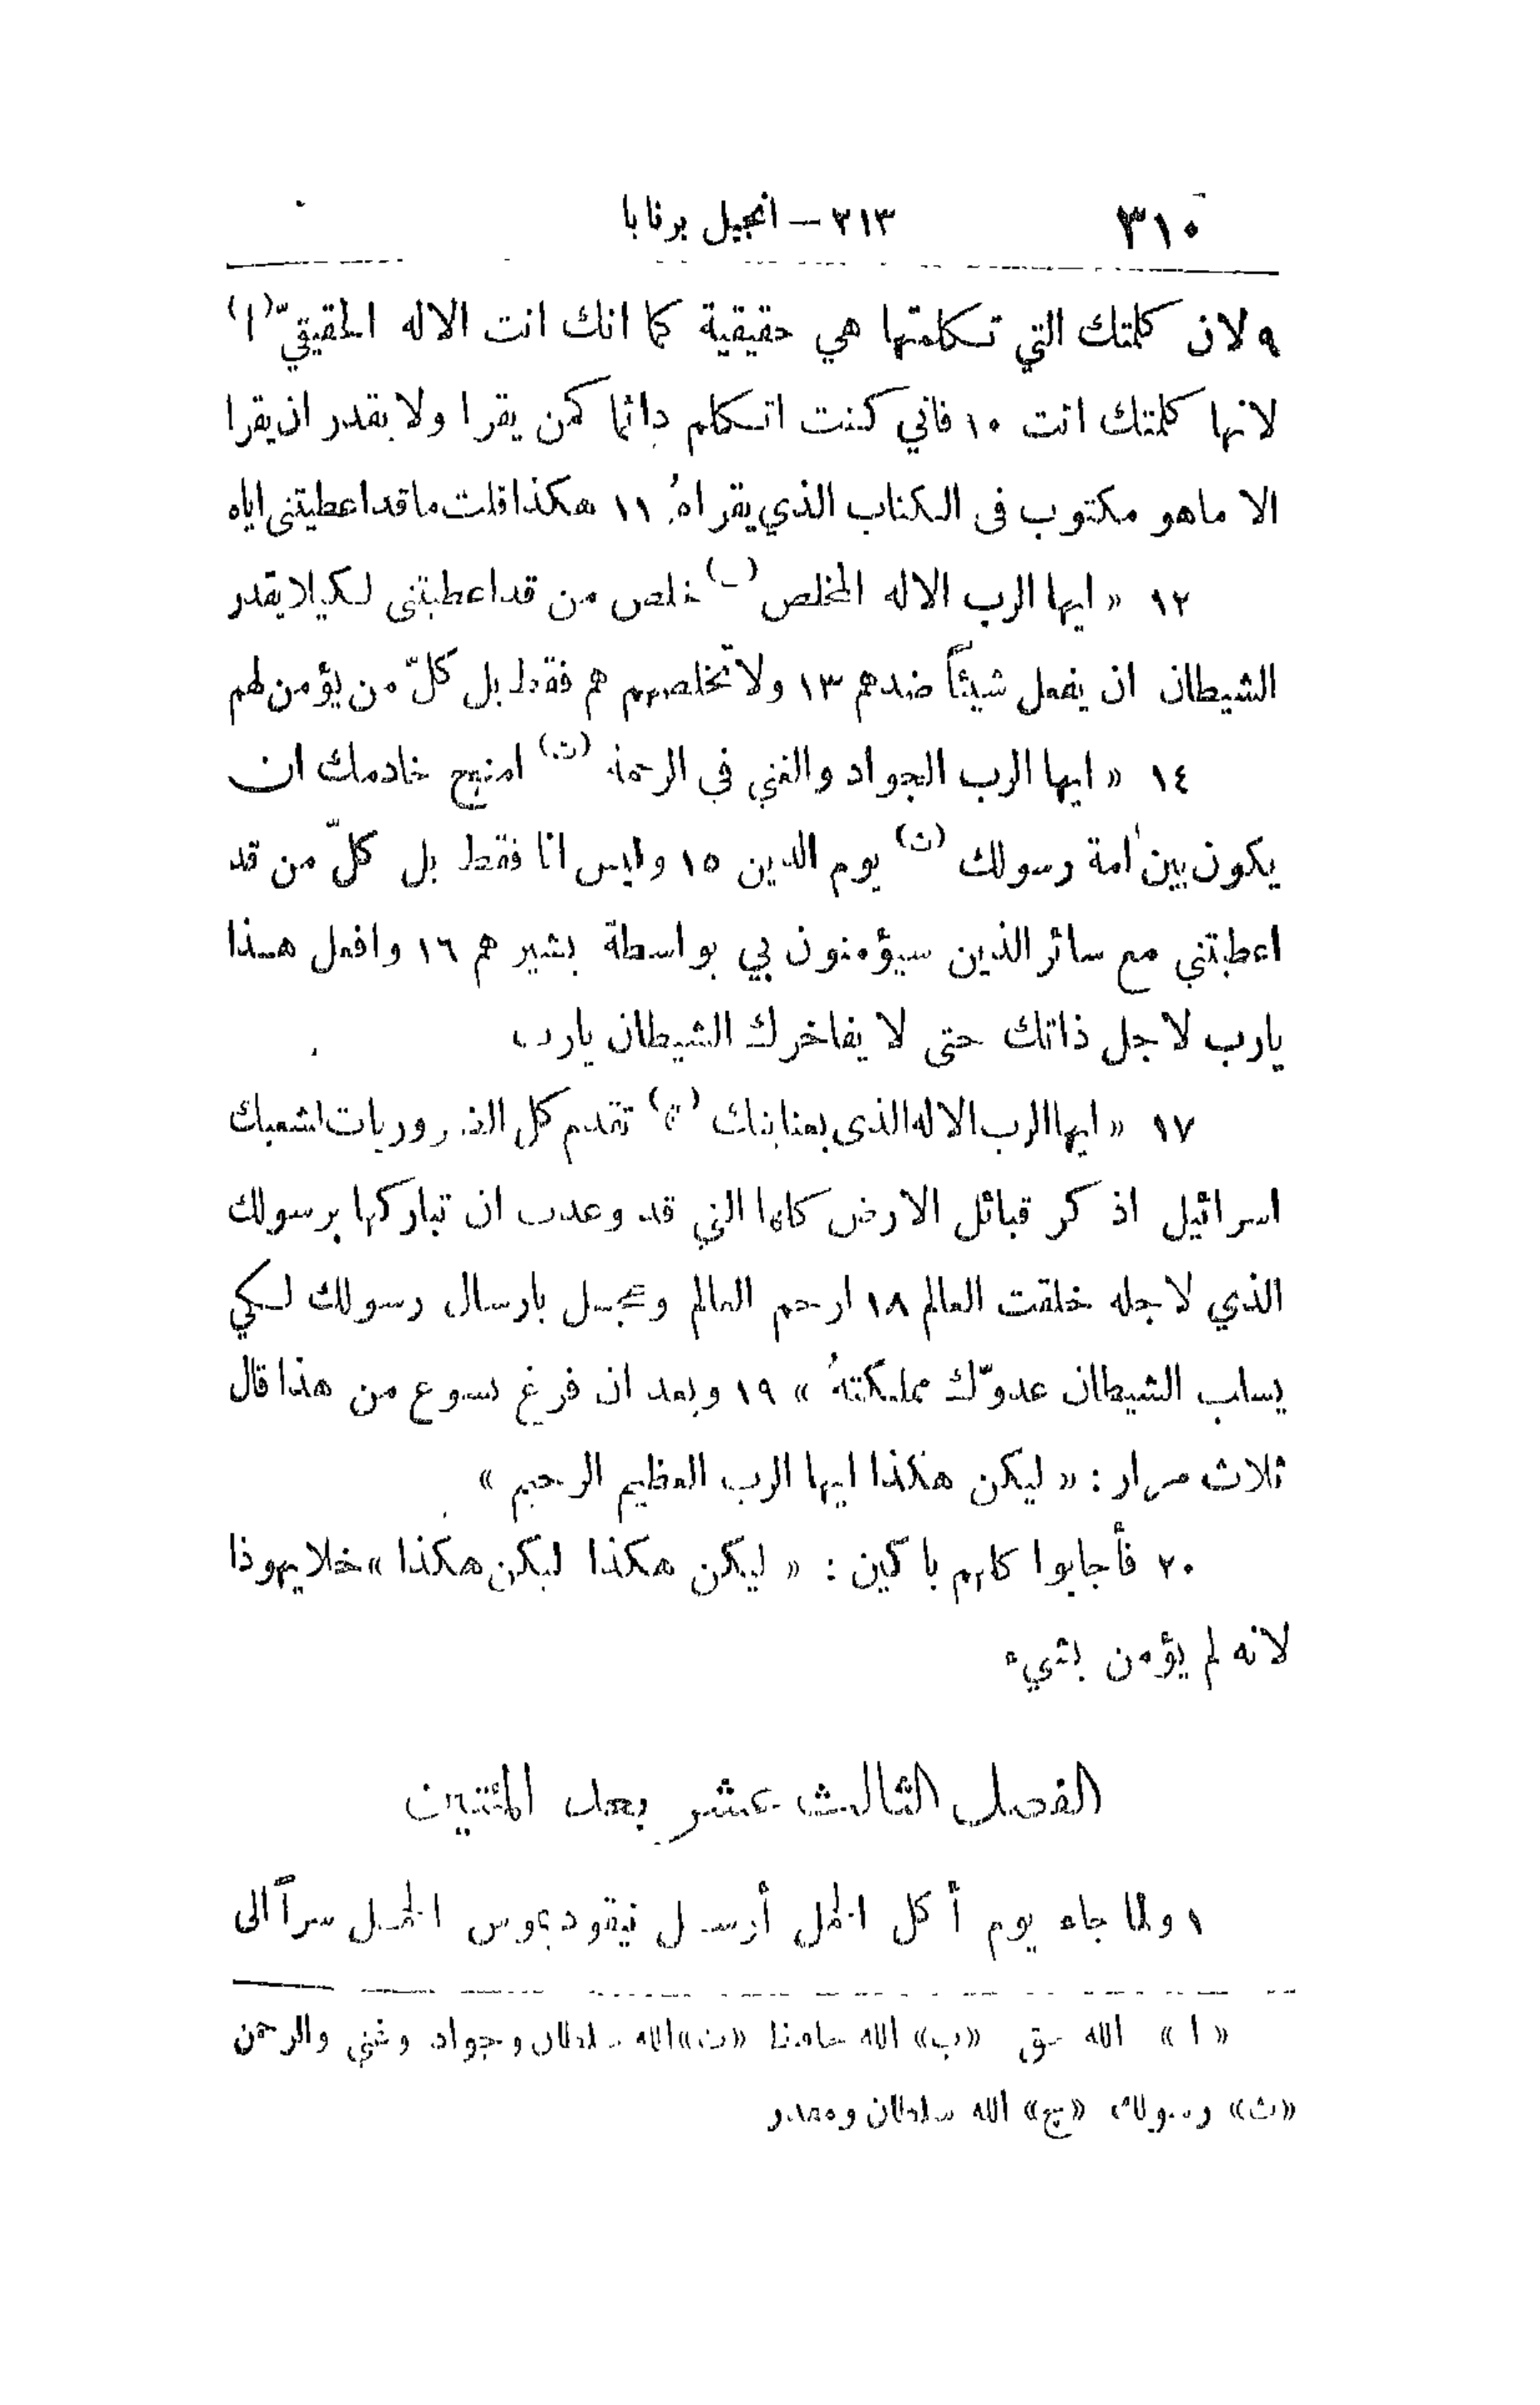 ٣١٠ ٢١٣ — انجيل برنابا
٩ لان كلمتك التي تكلمتها هي حقيقية كما انك انت الاله الحقيقيّ (ا)
لانها كلمتك انت ١٠ فاني كنت اتكلم دائما كمن يقرا ولا يقدر ان يقرا
الا ماهو مكتوب فى الكتاب الذي يقراهُ ١١ هكذا قلت ما قد اعطيتنى اياه
١٢ « ايها الرب الاله المخلص (ب) خلص من قد اعطيتنى لكيلا يقدر
الشيطان ان يفعل شيئاً ضدهم ١٣ ولا تخلصهم هم فقط بل كلّ من يؤمن لهم
١٤ « ايها الرب الجواد والغني في الرحمة (ت) امنح خادمك ان
يكون بين أمة رسولك (ث) يوم الدين ١٥ وليس انا فقط بل كلّ من قد
اعطيتني مع سائر الذين سيؤمنون بي بواسطة بشيرهم ١٦ وافعل هذا
يارب لاجل ذاتك حتى لا يفاخرك الشيطان يارب
١٧ « ايها الرب الاله الذى بعنايتك (ج) تقدم كل الضروريات لشعبك
اسرائيل اذكر قبائل الارض كلها التي قد وعدت ان تباركها برسولك
الذي لاجله خلقت العالم ١٨ ارحم العالم وعجل بارسال رسولك لكي
يسلب الشيطان عدوّك مملكتهُ » ١٩ وبعد ان فرغ يسوع من هذا قال
ثلاث مرار : « ليكن هكذا ايها الرب العظيم الرحيم »
٢٠ فأجابوا كلهم باكين : « ليكن هكذا ليكن هكذا » خلا يهوذا
لانه لم يؤمن بشيء
الفصل الثالث عشر بعد المئتين
١ ولما جاء يوم أكل الحمل أرسل نيقوديموس الحمل سراً الى
« ا » الله حق «ب» الله حافظنا «ت» الله سلطان وجواد وغني والرحمن
«ث» رسولك «ج» الله سلطان ومقدر